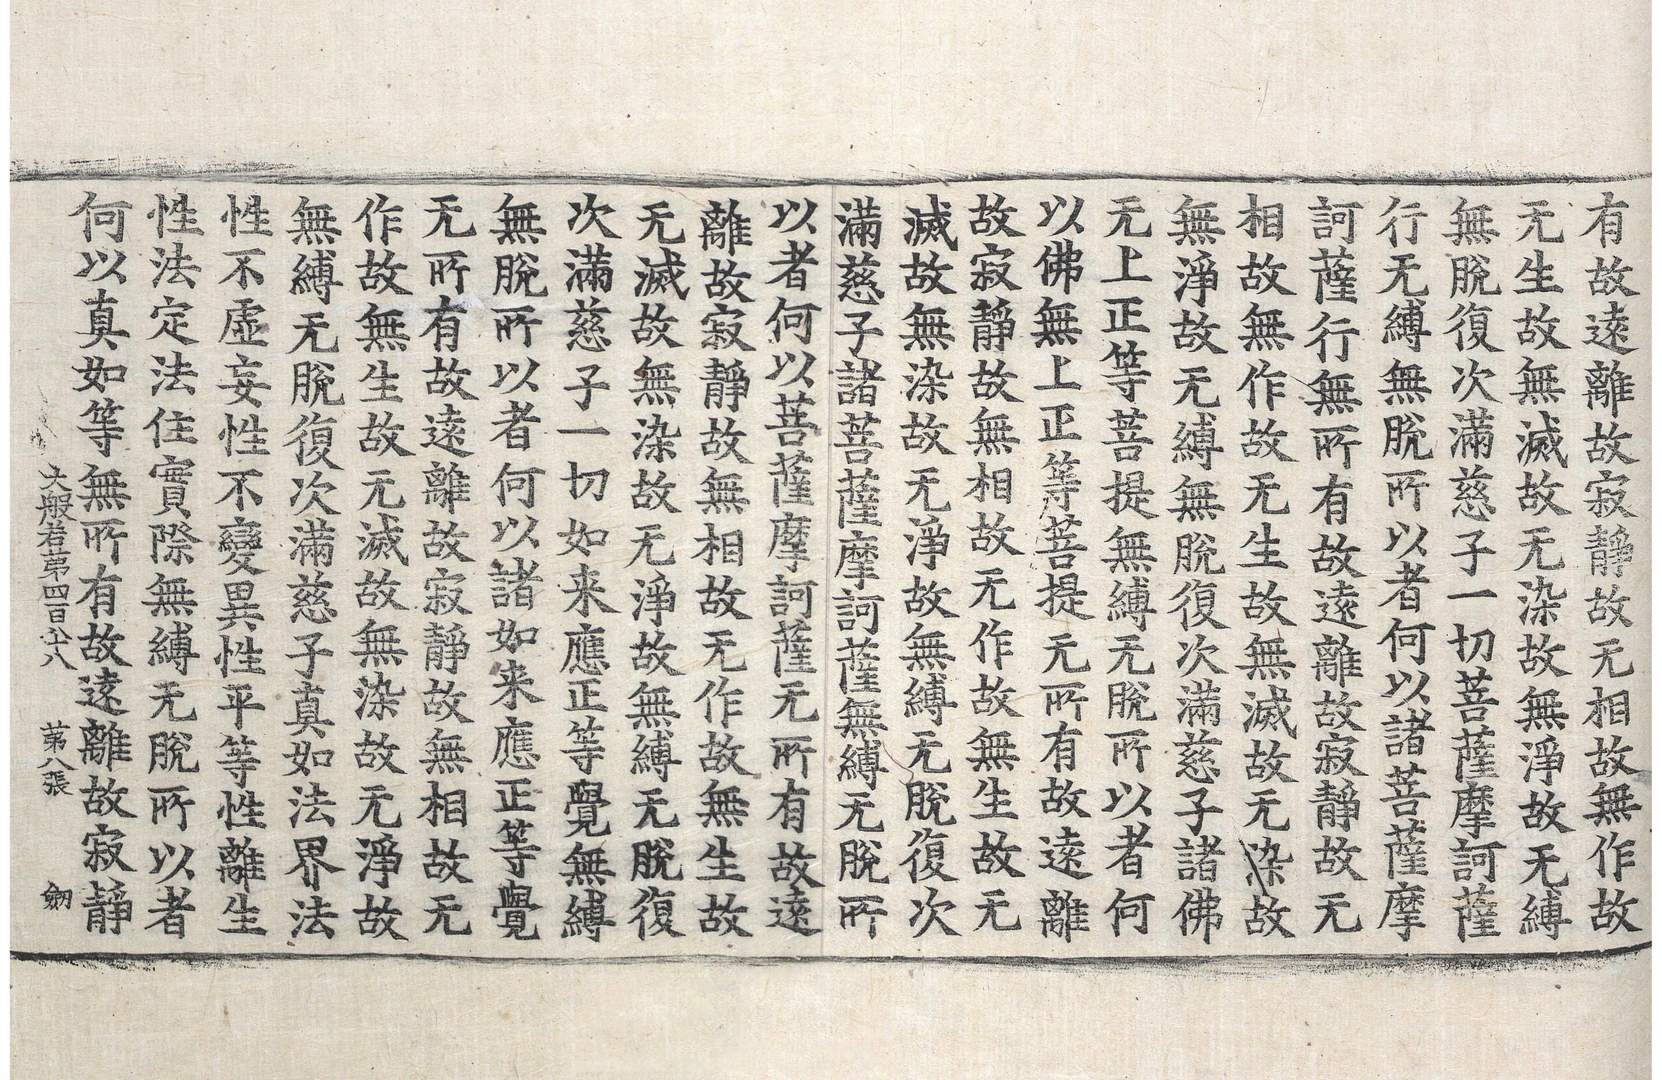 有故遠離故寂靜故无相故無作故
无生故無滅故无染故無淨故无縛
無脫復次滿慈子一切菩薩摩訶薩
行无縛無脫所以者何以諸菩薩摩
訶薩行無所有故遠離故寂靜故无
相故無作故无生故無滅故无染故
無淨故无縛無脫復次滿慈子諸佛
无上正等菩提無縛无脫所以者何
以佛無上正等菩提无所有故遠離
故寂靜故無相故无作故無生故无
滅故無染故无淨故無縛无脫復次
滿慈子諸菩薩摩訶薩無縛无脫所
以者何以菩薩摩訶薩无所有故遠
離故寂靜故無相故无作故無生故
无滅故無染故无淨故無縛无脫復
次滿慈子一切如来應正等覺無縛
無脫所以者何以諸如来應正等覺
无所有故遠離故寂靜故無相故无
作故無生故无滅故無染故无淨故
無縛无脫復次滿慈子真如法界法
性不虛妄性不變異性平等性離生
性法定法住實際無縛无脫所以者
何以真如等無所有故遠離故寂靜
大般若第四百八十八 第八張 劒